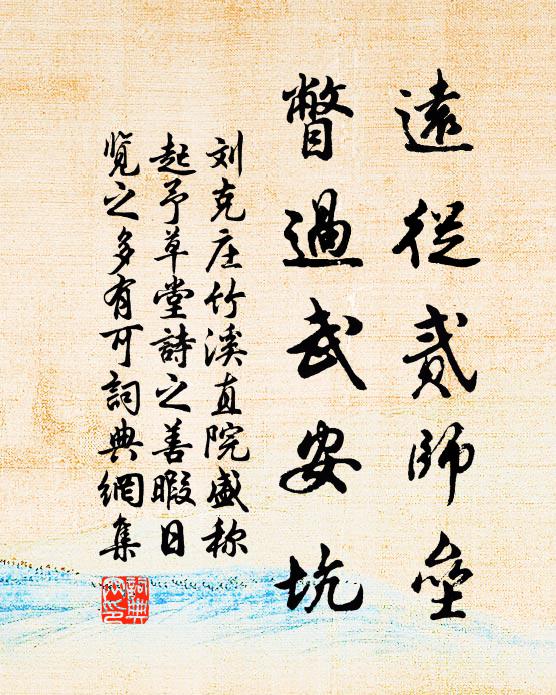 遠從貳師壘
瞥過武安坑
刘克庄竹溪直院盛称
起予草堂詩之善暇日
览之多有可詞典網集
詞典